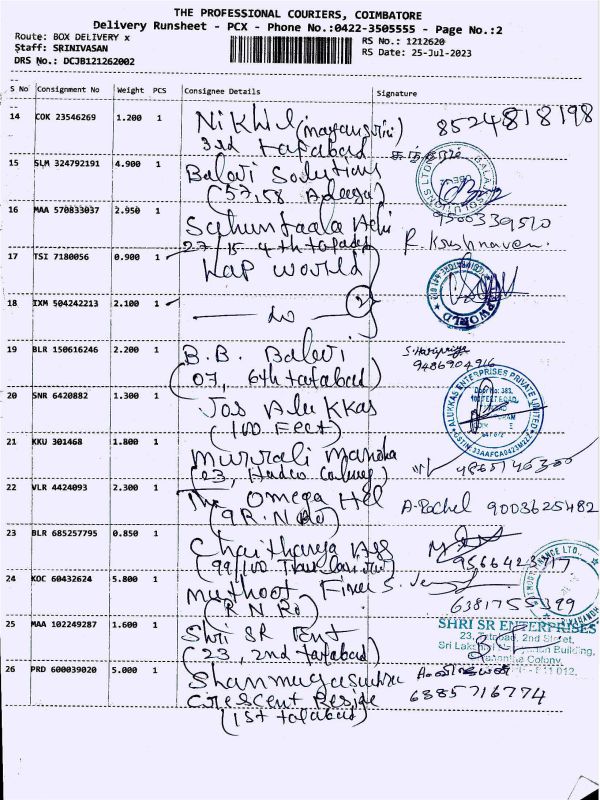 THE PROFESSIONAL COURIERS, COIMBATORE
Delivery Runsheet - PCX - Phone No.:0422-3505555 - Page No.:2
Route: BOX DELIVERY x
Staff: SRINIVASAN
DRS No.: DCJB121262002
RS No.: 1212620
RS Date: 25-Jul-2023
S No Consignment No Weight PCS Consignee Details Signature
14 COK 23546269 1.200 1 Nikhil 8524818198
3rd tatabad
15 SLM 324792191 4.900 1 Balavi Solutions
(57,58
16 MAA 570833037 2.950 1 9500339510
27/15 4th tatabad R. Krishnaveni
17 TSI 7180056 0.900 1 Lap World
18 IXM 504242213 2.100 1 2
19 BLR 150616246 2.200 1 B.B. Balavi S. Haripriya
(07, 6th tatabad) 9486904916
20 SNR 6420882 1.300 1 Jos Alukkas
(100 Feet)
ALUKKAS ENTERPRISES PRIVATE LIMITED
Door No: 383,
100 FEET ROAD
GSTIN:33AAFCA0423M2ZZ
21 KKU 301468 1.800 1 Murrali Manoha
(03, Hudco Colony)
22 VLR 4424093 2.300 1 The Omega Hel A. Rachel 9003625482
(9 R.N
23 BLR 685257795 0.850 1 Chaithanya
(99/100 9566423717
24 KOC 60432624 5.800 1 Muthoot Finer S.
(R N Ro) 6381755399
25 MAA 102249287 1.600 1 Shri SR Tent
(23, 2nd tatabad)
SHRI SR ENTERPRISES
23, Tatabad, 2nd Street,
Sri Lakshmi Building,
Colony,
26 PRD 600039020 5.000 1
Crescent Reside 6385716774
(1st tatabad)